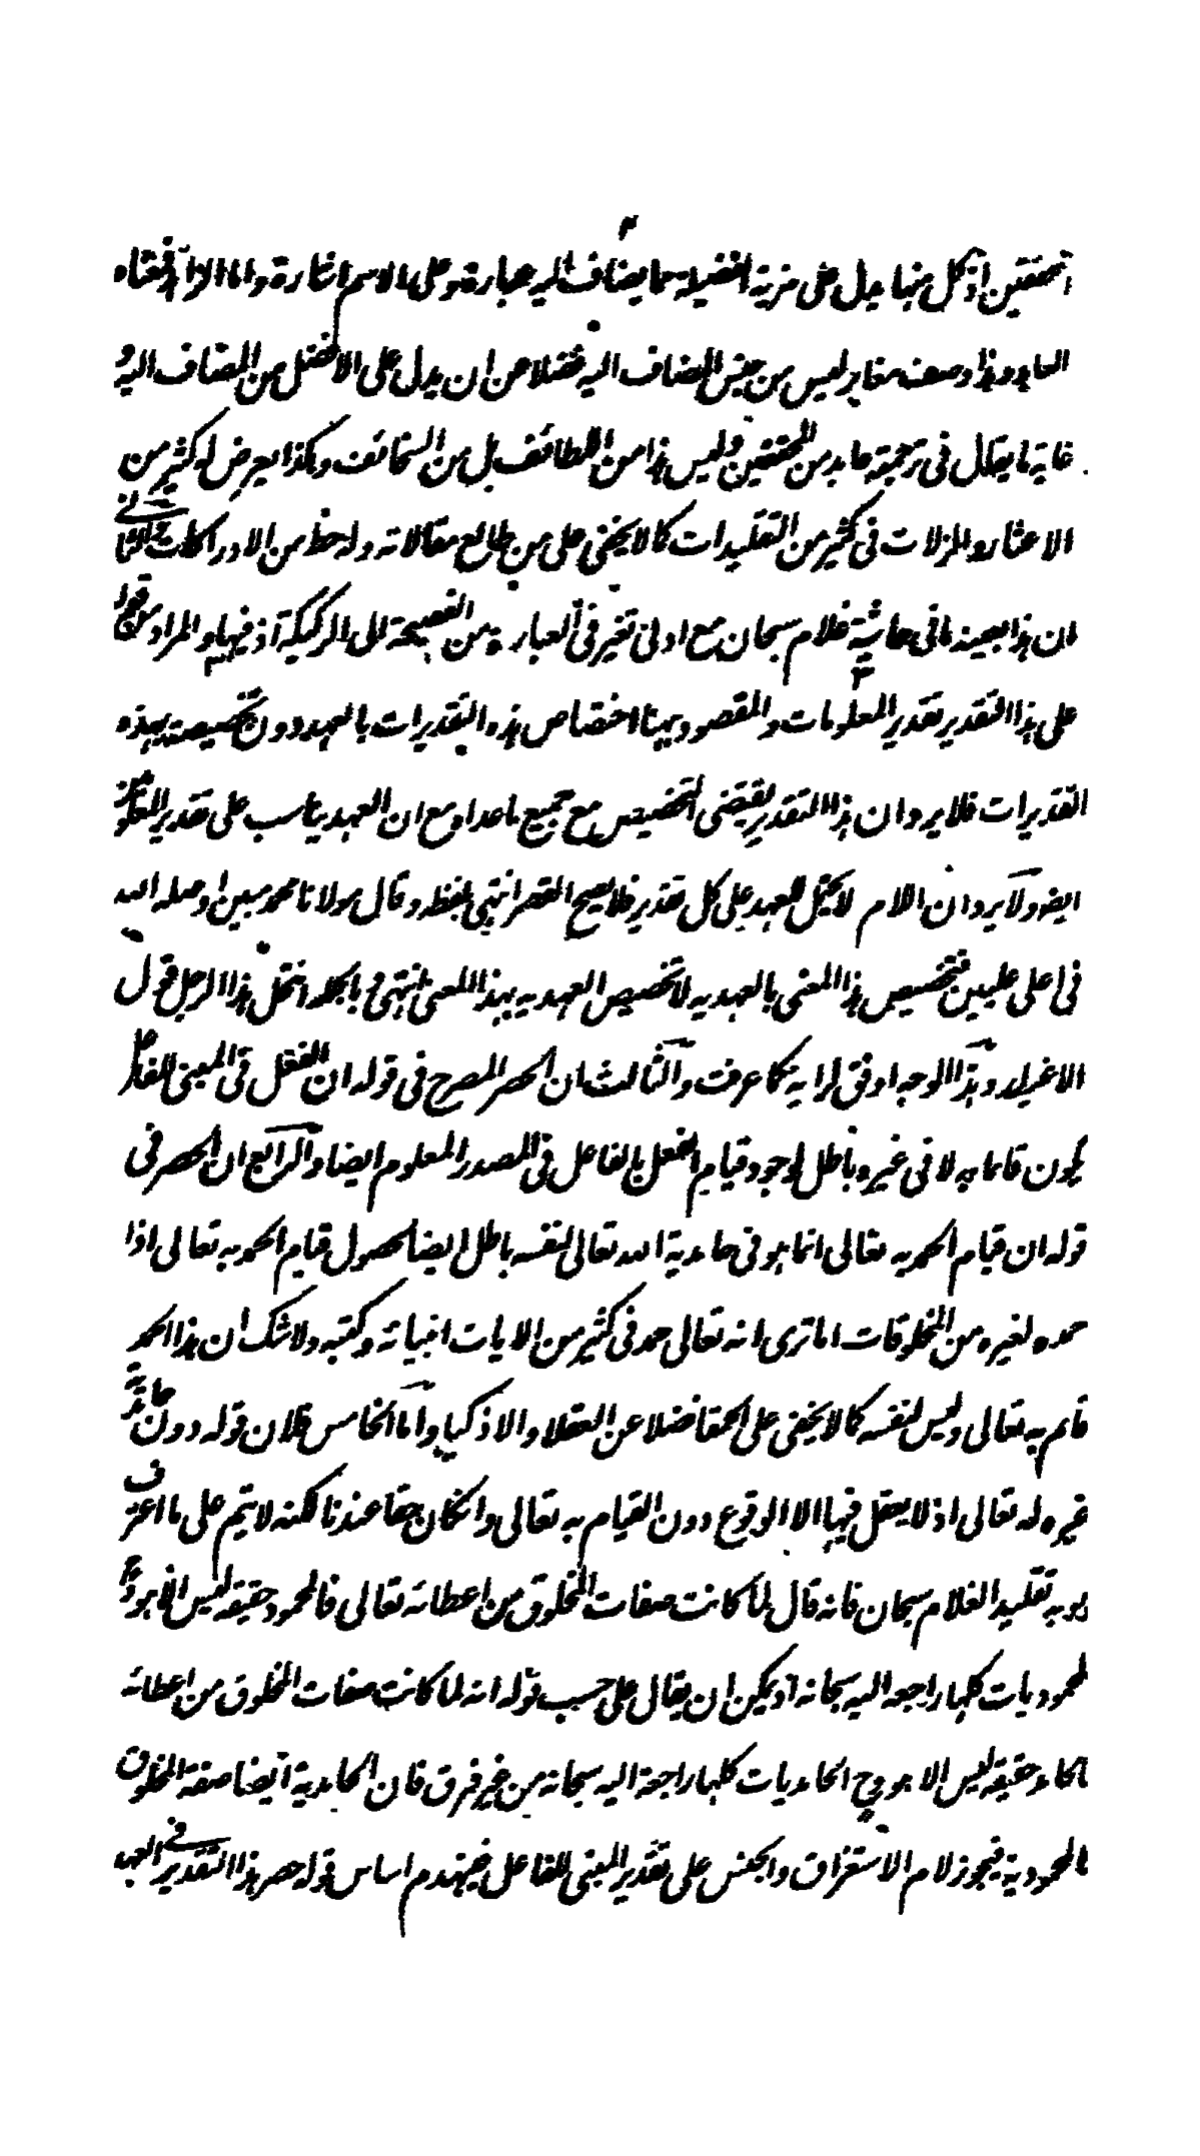 المحققين اذ كل منها يدل على مزية افضيلة مما يضاف اليه عبارة وعلى الاسم اشارة واما الاول فمعناه
العابد وهذا وصف مغاير ليس من جنس المضاف اليه فضلا عن ان يدل على الافضل من المضاف اليه و
غاية ما يقال فى ترجمته عابد من المحققين وليس هذا من اللطائف بل من السخائف وهكذا يعرض له كثير من
الاعثار والمزلات فى كثير من التقليدات كما لا يخفى على من طالع مقالاته وله حظ من الادراكات والثانى
ان هذا بعينه ما فى حاشية غلام سبحان مع ادنى تغير فى العبارة من الفصيحة الى الركيكة اذ فيها والمراد من قولنا
على هذا التقدير تقدير المعلومات والمقصود بيننا اختصاص هذه التقديرات بالعهد دون تخصيصه بهذه
التقديرات فلا يرد ان هذا التقدير يقتضى التخصيص مع جميع ما عداه مع ان العهد يناسب على تقدير المفعول
ايضا ولا يرد ان اللام لا يحتمل العهد على كل تقدير فلا يصح القصر انتهى بلفظه وقال مولانا محمد مبين اوصله الله
فى اعلى عليين فتخصيص هذا المعنى بالعهدية لا تخصيص العهدية بهذا المعنى انتهى وبالجملة انتحل هذا الرجل قول
الاغيار وهذا الوجه اوفق لرايه كما عرفت والثالث ان الحصر المصرح فى قوله ان الفعل فى المبنى للفاعل
يكون قائما به لا فى غيره باطل لوجود قيام الفعل بالفاعل فى المصدر المعلوم ايضا والرابع ان الحصر فى
قوله ان قيام الحمد به تعالى انما هو فى حامدية الله تعالى لنفسه باطل ايضا لحصول قيام الحمد به تعالى اذا
حمده لغيره من المخلوقات اما ترى انه تعالى حمد فى كثير من الايات انبيائه وكتبه ولا شك ان هذا الحمد
قائم به تعالى وليس لنفسه كما لا يخفى على الحمقا فضلا عن العقلاء والاذكياء واما الخامس فلان قوله دون حامدية
غيره له تعالى اذ لا يعقل فيها الا الوقوع دون القيام به تعالى وان كان حقا عندنا لكنه لا يتم على ما اعترف
هو به تقليد الغلام سبحان فانه قال لما كانت صفات المخلوق من اعطائه تعالى فالمحمود حقيقة ليس الا هو و
المحموديات كلها راجعة اليه سبحانه اذ يمكن ان يقال على حسب قوله انه لما كانت صفات المخلوق من اعطائه
فالحامد حقيقة ليس الا هو وح الحامديات كلها راجعة اليه سبحانه من غير فرق فان الحامدية ايضا صفة المخلوق
كالمحمودية فيجوز لام الاستغراق والجنس على تقدير المبنى للفاعل فينهدم اساس قوله حصر هذا التقدير فى العهد